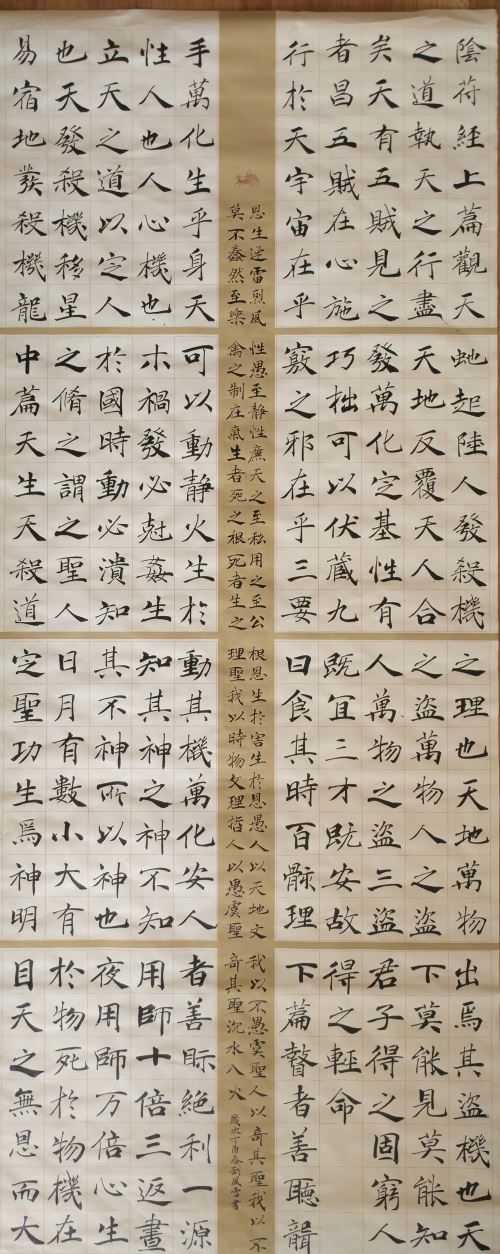 陰符經上篇觀天
之道執天之行盡
矣天有五賊見之
者昌五賊在心施
行於天宇宙在乎
手萬化生乎身天
性人也人心機也
立天之道以定人
也天發殺機移星
易宿地發殺機龍
虵起陸人發殺機
天地反覆天人合
發萬化定基性有
巧拙可以伏藏九
竅之邪在乎三要
可以動靜火生於
木禍發必尅姦生
於國時動必潰知
之脩之謂之聖人
中篇天生天殺道
之理也天地萬物
之盜萬物人之盜
人萬物之盜三盜
既宜三才既安故
曰食其時百骸理
動其機萬化安人
知其神之神不知
其不神所以神也
日月有數小大有
定聖功生焉神明
出焉其盜機也天
下莫能見莫能知
君子得之固窮人
得之輕命
下篇瞽者善聽聾
者善眎絕利一源
用師十倍三返晝
夜用師万倍心生
於物死於物機在
目天之無恩而大
恩生迅雷烈風
莫不蠢然至樂
性愚至靜性廉天之至私用之至公
禽之制在氣生者死之根死者生之
根恩生於害生於恩愚人以天地文
理聖我以時物文理哲人以愚虞聖
我以不愚虞聖人以奇其聖我以不
奇其聖沉水入火
歲次丁酉春劉風雷書